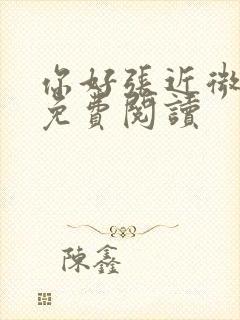 你好張近微
免費閱讀
陳鑫